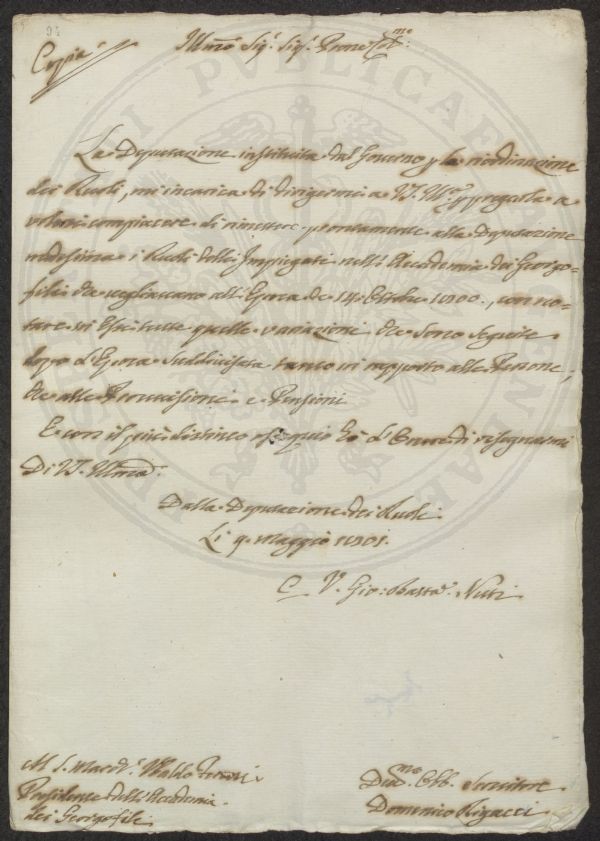 Copia
Illmo Sig.r Sig.r Prone Colmo
La Deputazione instituita dal Governo p la riordinazione
dei Ruoli, mi incarica di dirigermi a VS. Illma p pregarla a
volersi compiacere di rimettere prontamente alla Deputazione
medesima i Ruoli delli Impiegati nell'Accademia dei Georgo-
fili che vegliavano all'Epoca de 14. Ottobre 1800., con no-
tare in essi tutte quelle variazioni che sono seguite
dopo d.a Epoca suddivisata tanto in rapporto alle Persone,
che alle Provvisioni e Pensioni
E con il più distinto ossequio ho l'Onore di rassegnarmi
Di VS. Illma
Dalla Deputazione dei Ruoli
Li 9. Maggio 1801.
Gio: Batta Nuti
March.e Ubaldo Feroni
Presidente dell'Accademia
dei Georgofili
Devmo Obb. Servitore
Domenico Rigacci